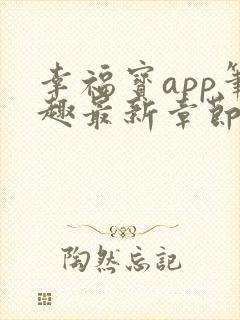 幸福宝app笔
趣最新章节
陶然忘记